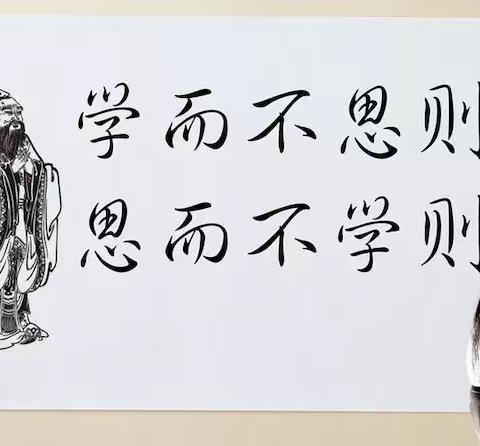 学而不思则
思而不学则